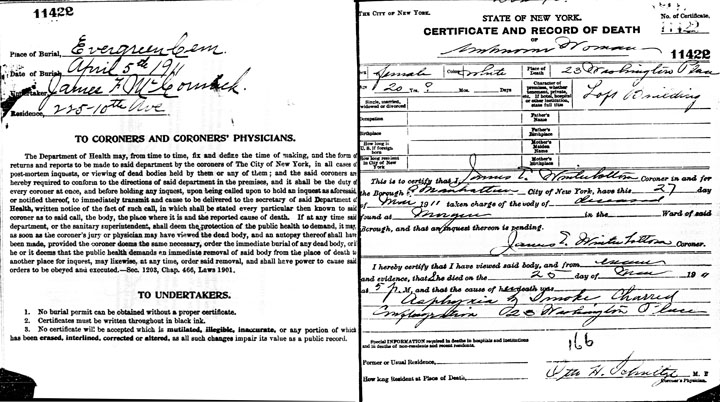 11422
Place of Burial, Evergreen Cem.
Date of Burial, April 5th 1911
Undertaker, James F. McCormack
Residence, 225-10th Ave
TO CORONERS AND CORONERS' PHYSICIANS.
The Department of Health may, from time to time, fix and define the time of making, and the form of
returns and reports to be made to said department by the coroners of The City of New York, in all cases of
post-mortem inquests, or viewing of dead bodies held by them or any of them; and the said coroners are
hereby required to conform to the directions of said department in the premises, and it shall be the duty of
every coroner at once, and before holding any inquest, upon being called upon to hold an inquest as aforesaid
or notified thereof, to immediately transmit and cause to be delivered to the secretary of said Department of
Health, written notice of the fact of such call, in which shall be stated every particular then known to said
coroner as to said call, the body, the place where it is and the reported cause of death. If at any time said
department, or the sanitary superintendent, shall deem the protection of the public health to demand, it may,
as soon as the coroner's jury or physician may have viewed the dead body, and an autopsy thereof shall have
been made, provided the coroner deems the same necessary, order the immediate burial of any dead body, or if
he or it deems that the public health demands an immediate removal of said body from the place of death to
another place for inquest, may likewise, at any time, order said removal, and shall have power to cause said
orders to be obeyed and executed.—Sec. 1203, Chap. 466, Laws 1901.
TO UNDERTAKERS.
1. No burial permit can be obtained without a proper certificate.
2. Certificates must be written throughout in black ink.
3. No certificate will be accepted which is mutilated, illegible, inaccurate, or any portion of which
has been erased, interlined, corrected or altered, as all such changes impair its value as a public record.
THE CITY OF NEW YORK.
STATE OF NEW YORK.
No. of Certificate,
CERTIFICATE AND RECORD OF DEATH
OF
11422
Unknown Woman
11422
Sex Female Color White Place of Death 23 Washington Place
Age 20 Yrs. ? Mos. Days Character of premises, whether tenement, private, etc. If hotel, hospital or other institution, state full title Loft Building
Single, married, widowed or divorced
Occupation Father's Name
Birthplace Father's Birthplace
How long in U.S. if foreign born Mother's Maiden Name
How long resident in City of New York Mother's Birthplace
This is to certify that I, James E. Winterbottom Coroner in and for
the Borough of Manhattan City of New York, have this 27 day
of Mar 1911 taken charge of the body of deceased
found at Morgue in the Ward of said
Borough, and that an inquest thereon is pending.
James E. Winterbottom Coroner.
I hereby certify that I have viewed said body, and from
and evidence, that she died on the 25 day of Mar 1911
at 5 P.M, and that the cause of her death was:
Asphyxia by Smoke Charred
Conflagration 23 Washington Place
Special INFORMATION required in deaths in hospitals and institutions
and in deaths of non-residents and recent residents.
166
Former or Usual Residence,
Otto H. Schultze M. D
How long Resident at Place of Death,
Coroner's Physician.